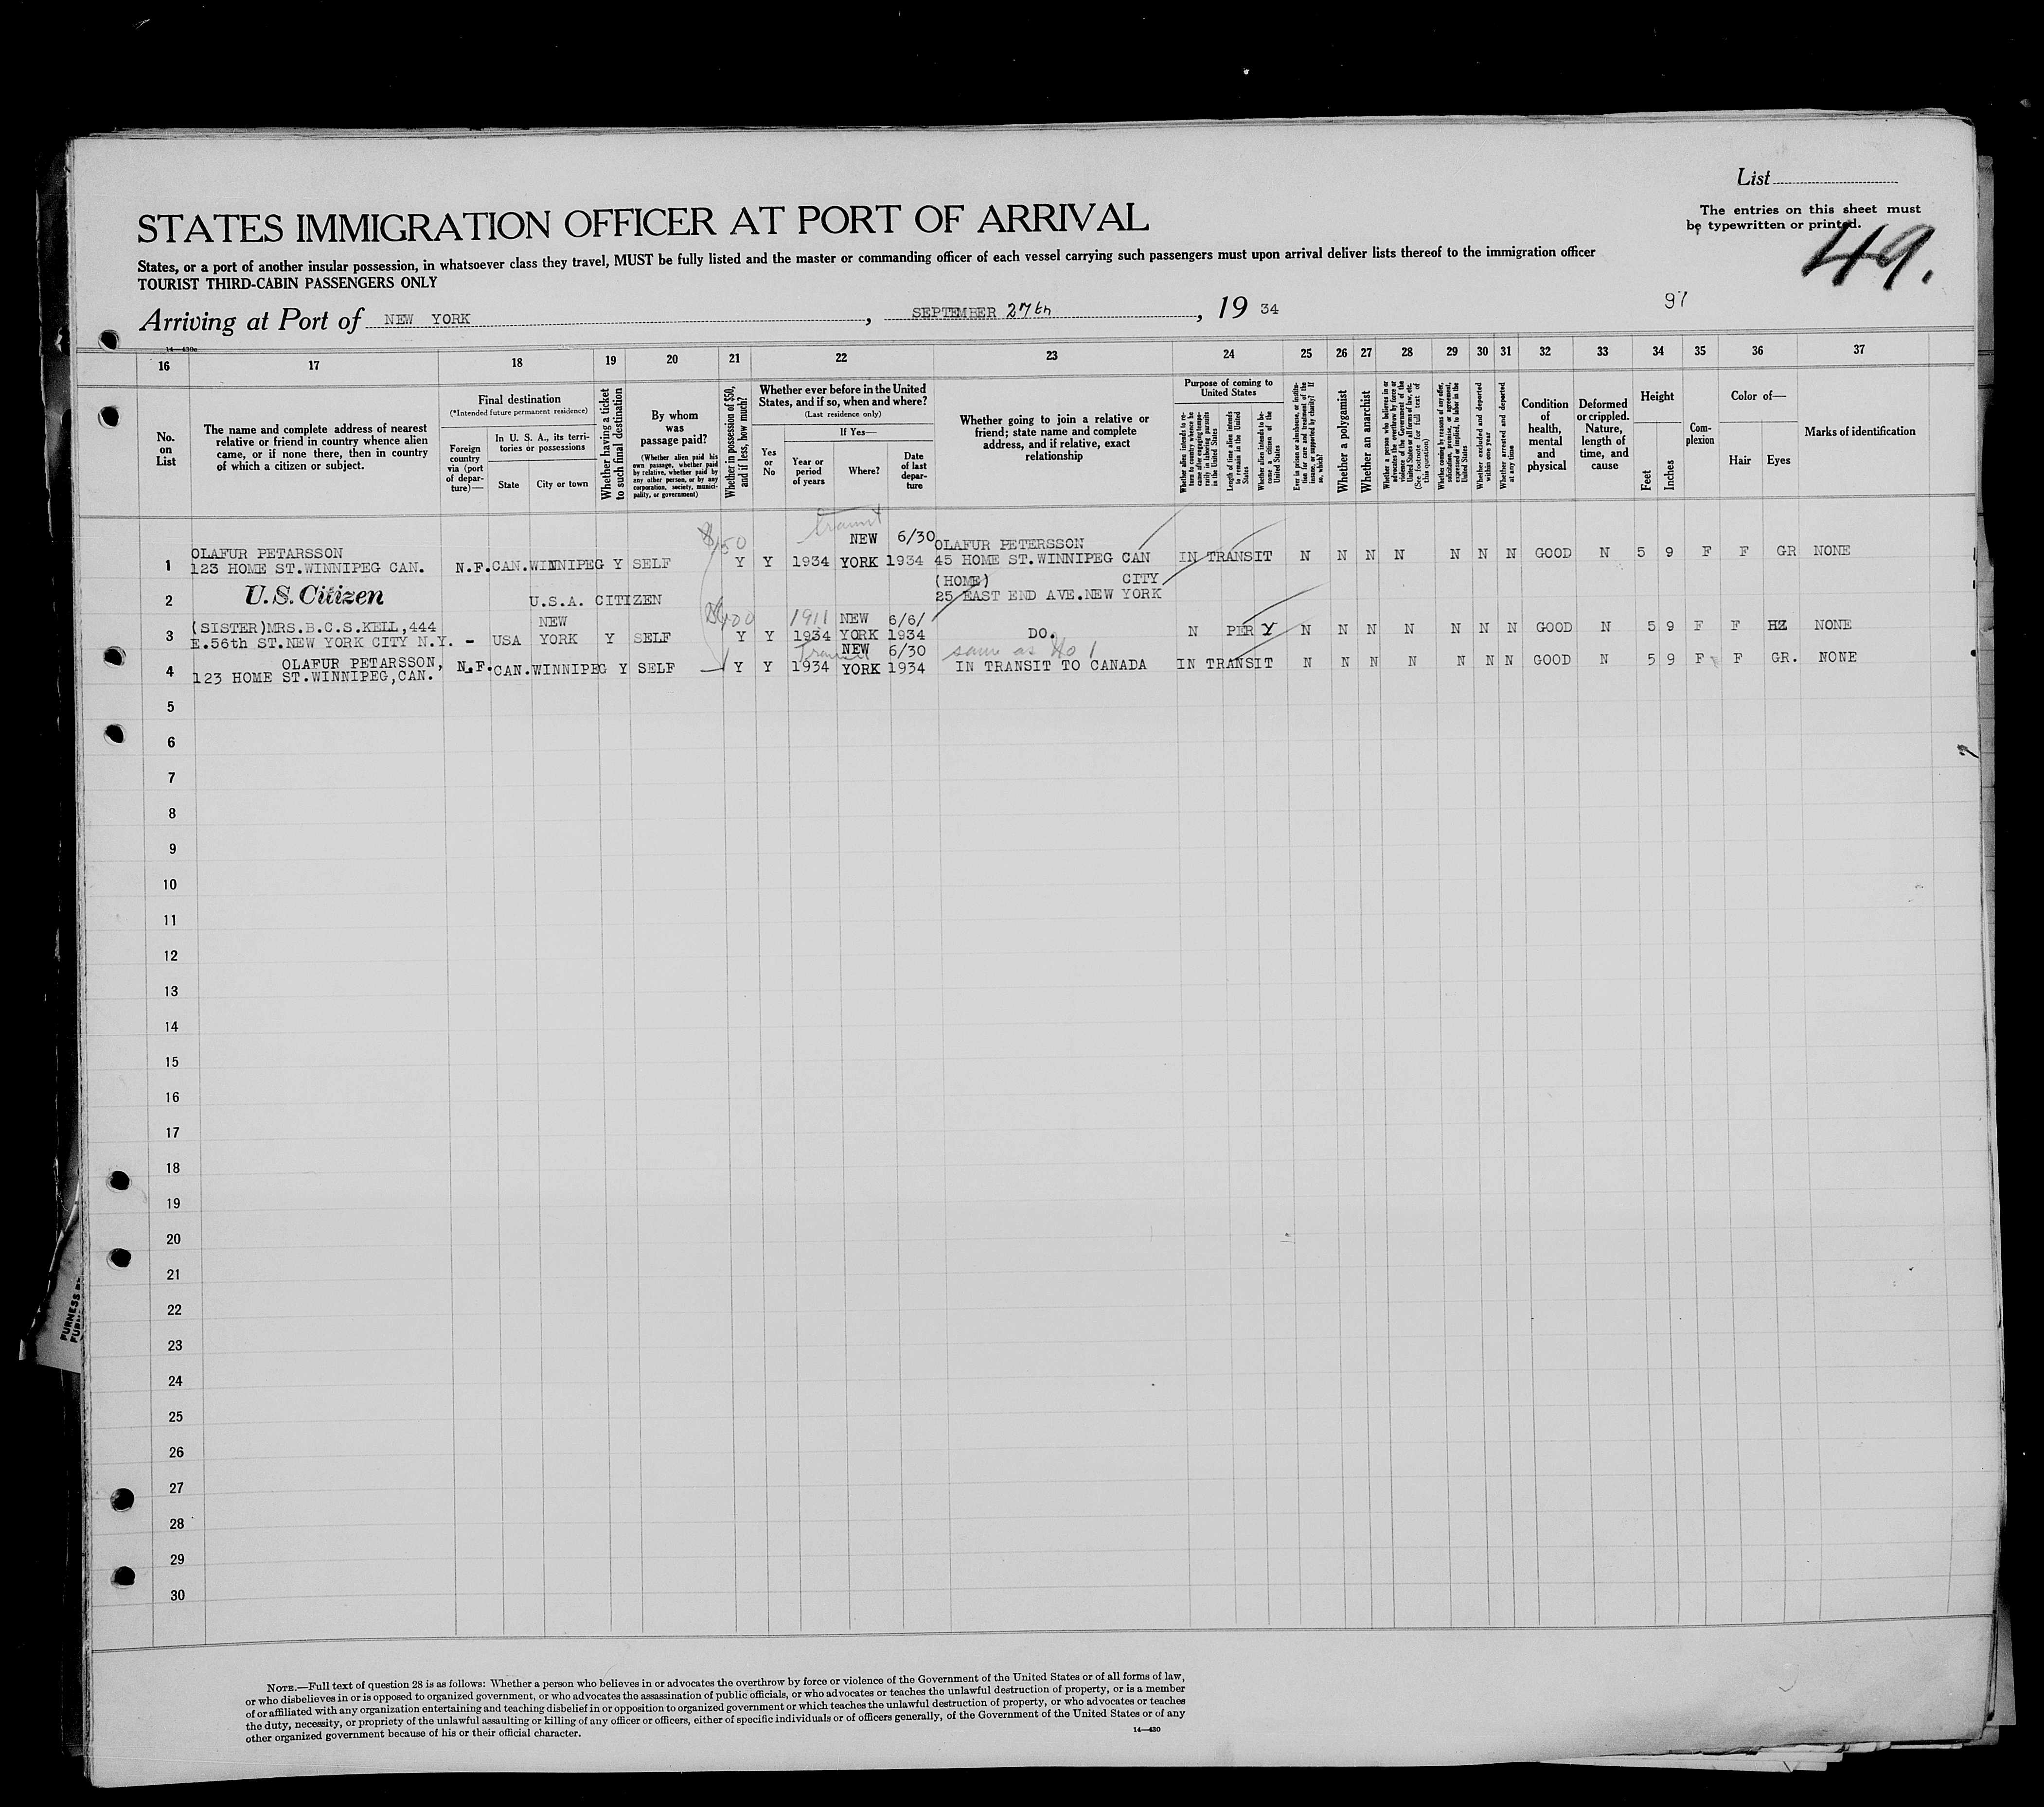 List
The entries on this sheet must
be typewritten or printed.
49.
STATES IMMIGRATION OFFICER AT PORT OF ARRIVAL
States, or a port of another insular possession, in whatsoever class they travel, MUST be fully listed and the master or commanding officer of each vessel carrying such passengers must upon arrival deliver lists thereof to the immigration officer
TOURIST THIRD-CABIN PASSENGERS ONLY
97
Arriving at Port of NEW YORK, SEPTEMBER 27th, 19 34
14—430c
16 17 18 19 20 21 22 23 24 25 26 27 28 29 30 31 32 33 34 35 36 37
No. on List
The name and complete address of nearest relative or friend in country whence alien came, or if none there, then in country of which a citizen or subject.
Final destination
(*Intended future permanent residence)
Foreign country via (port of departure)—
In U. S. A., its territories or possessions
State
City or town
Whether having a ticket to such final destination
By whom was passage paid?
(Whether alien paid his own passage, whether paid by relative, whether paid by any other person, or by any corporation, society, municipality, or government)
Whether in possession of $50, and if less, how much?
Whether ever before in the United States, and if so, when and where?
(Last residence only)
Yes or No
If Yes—
Year or period of years
Where?
Date of last departure
Whether going to join a relative or friend; state name and complete address, and if relative, exact relationship
Purpose of coming to United States
Whether alien intends to return to country whence he came after engaging temporarily in laboring pursuits in the United States
Length of time alien intends to remain in the United States
Whether alien intends to become a citizen of the United States
Ever in prison or almshouse, or institution for care and treatment of the insane, or supported by charity? If so, which?
Whether a polygamist
Whether an anarchist
Whether a person who believes in or advocates the overthrow by force or violence of the Government of the United States or all forms of law, etc. (See footnote for full text of this question)
Whether coming by reasons of any offer, solicitation, promise, or agreement, expressed or implied, to labor in the United States
Whether excluded and deported within one year
Whether arrested and deported at any time
Condition of health, mental and physical
Deformed or crippled. Nature, length of time, and cause
Height
Feet
Inches
Complexion
Color of—
Hair
Eyes
Marks of identification
transit
$150
NEW 6/30
OLAFUR PETARSSON OLAFUR PETERSSON
1 123 HOME ST.WINNIPEG CAN. N.F. CAN. WINNIPEG Y SELF Y Y 1934 YORK 1934 45 HOME ST.WINNIPEG CAN IN TRANSIT N N N N N N N GOOD N 5 9 F F GR NONE
(HOME) CITY
2 U.S. Citizen U.S.A. CITIZEN 25 EAST END AVE.NEW YORK
NEW $400 1911 NEW 6/6/
(SISTER)MRS.B.C.S.KELL,444
3 E.56th ST.NEW YORK CITY N.Y. - USA YORK Y SELF Y Y 1934 YORK 1934 DO. N PER Y N N N N N N N GOOD N 5 9 F F HZ NONE
Transit NEW 6/30 same as No 1
OLAFUR PETARSSON,
4 123 HOME ST.WINNIPEG,CAN. N.F. CAN. WINNIPEG Y SELF Y Y 1934 YORK 1934 IN TRANSIT TO CANADA IN TRANSIT N N N N N N N GOOD N 5 9 F F GR. NONE
5
6
7
8
9
10
11
12
13
14
15
16
17
18
19
20
21
22
23
24
25
26
27
28
29
30
FURNESS
NOTE.—Full text of question 28 is as follows: Whether a person who believes in or advocates the overthrow by force or violence of the Government of the United States or of all forms of law,
or who disbelieves in or is opposed to organized government, or who advocates the assassination of public officials, or who advocates or teaches the unlawful destruction of property, or is a member
of or affiliated with any organization entertaining and teaching disbelief in or opposition to organized government or which teaches the unlawful destruction of property, or who advocates or teaches
the duty, necessity, or propriety of the unlawful assaulting or killing of any officer or officers, either of specific individuals or of officers generally, of the Government of the United States or of any
other organized government because of his or their official character.
14—430